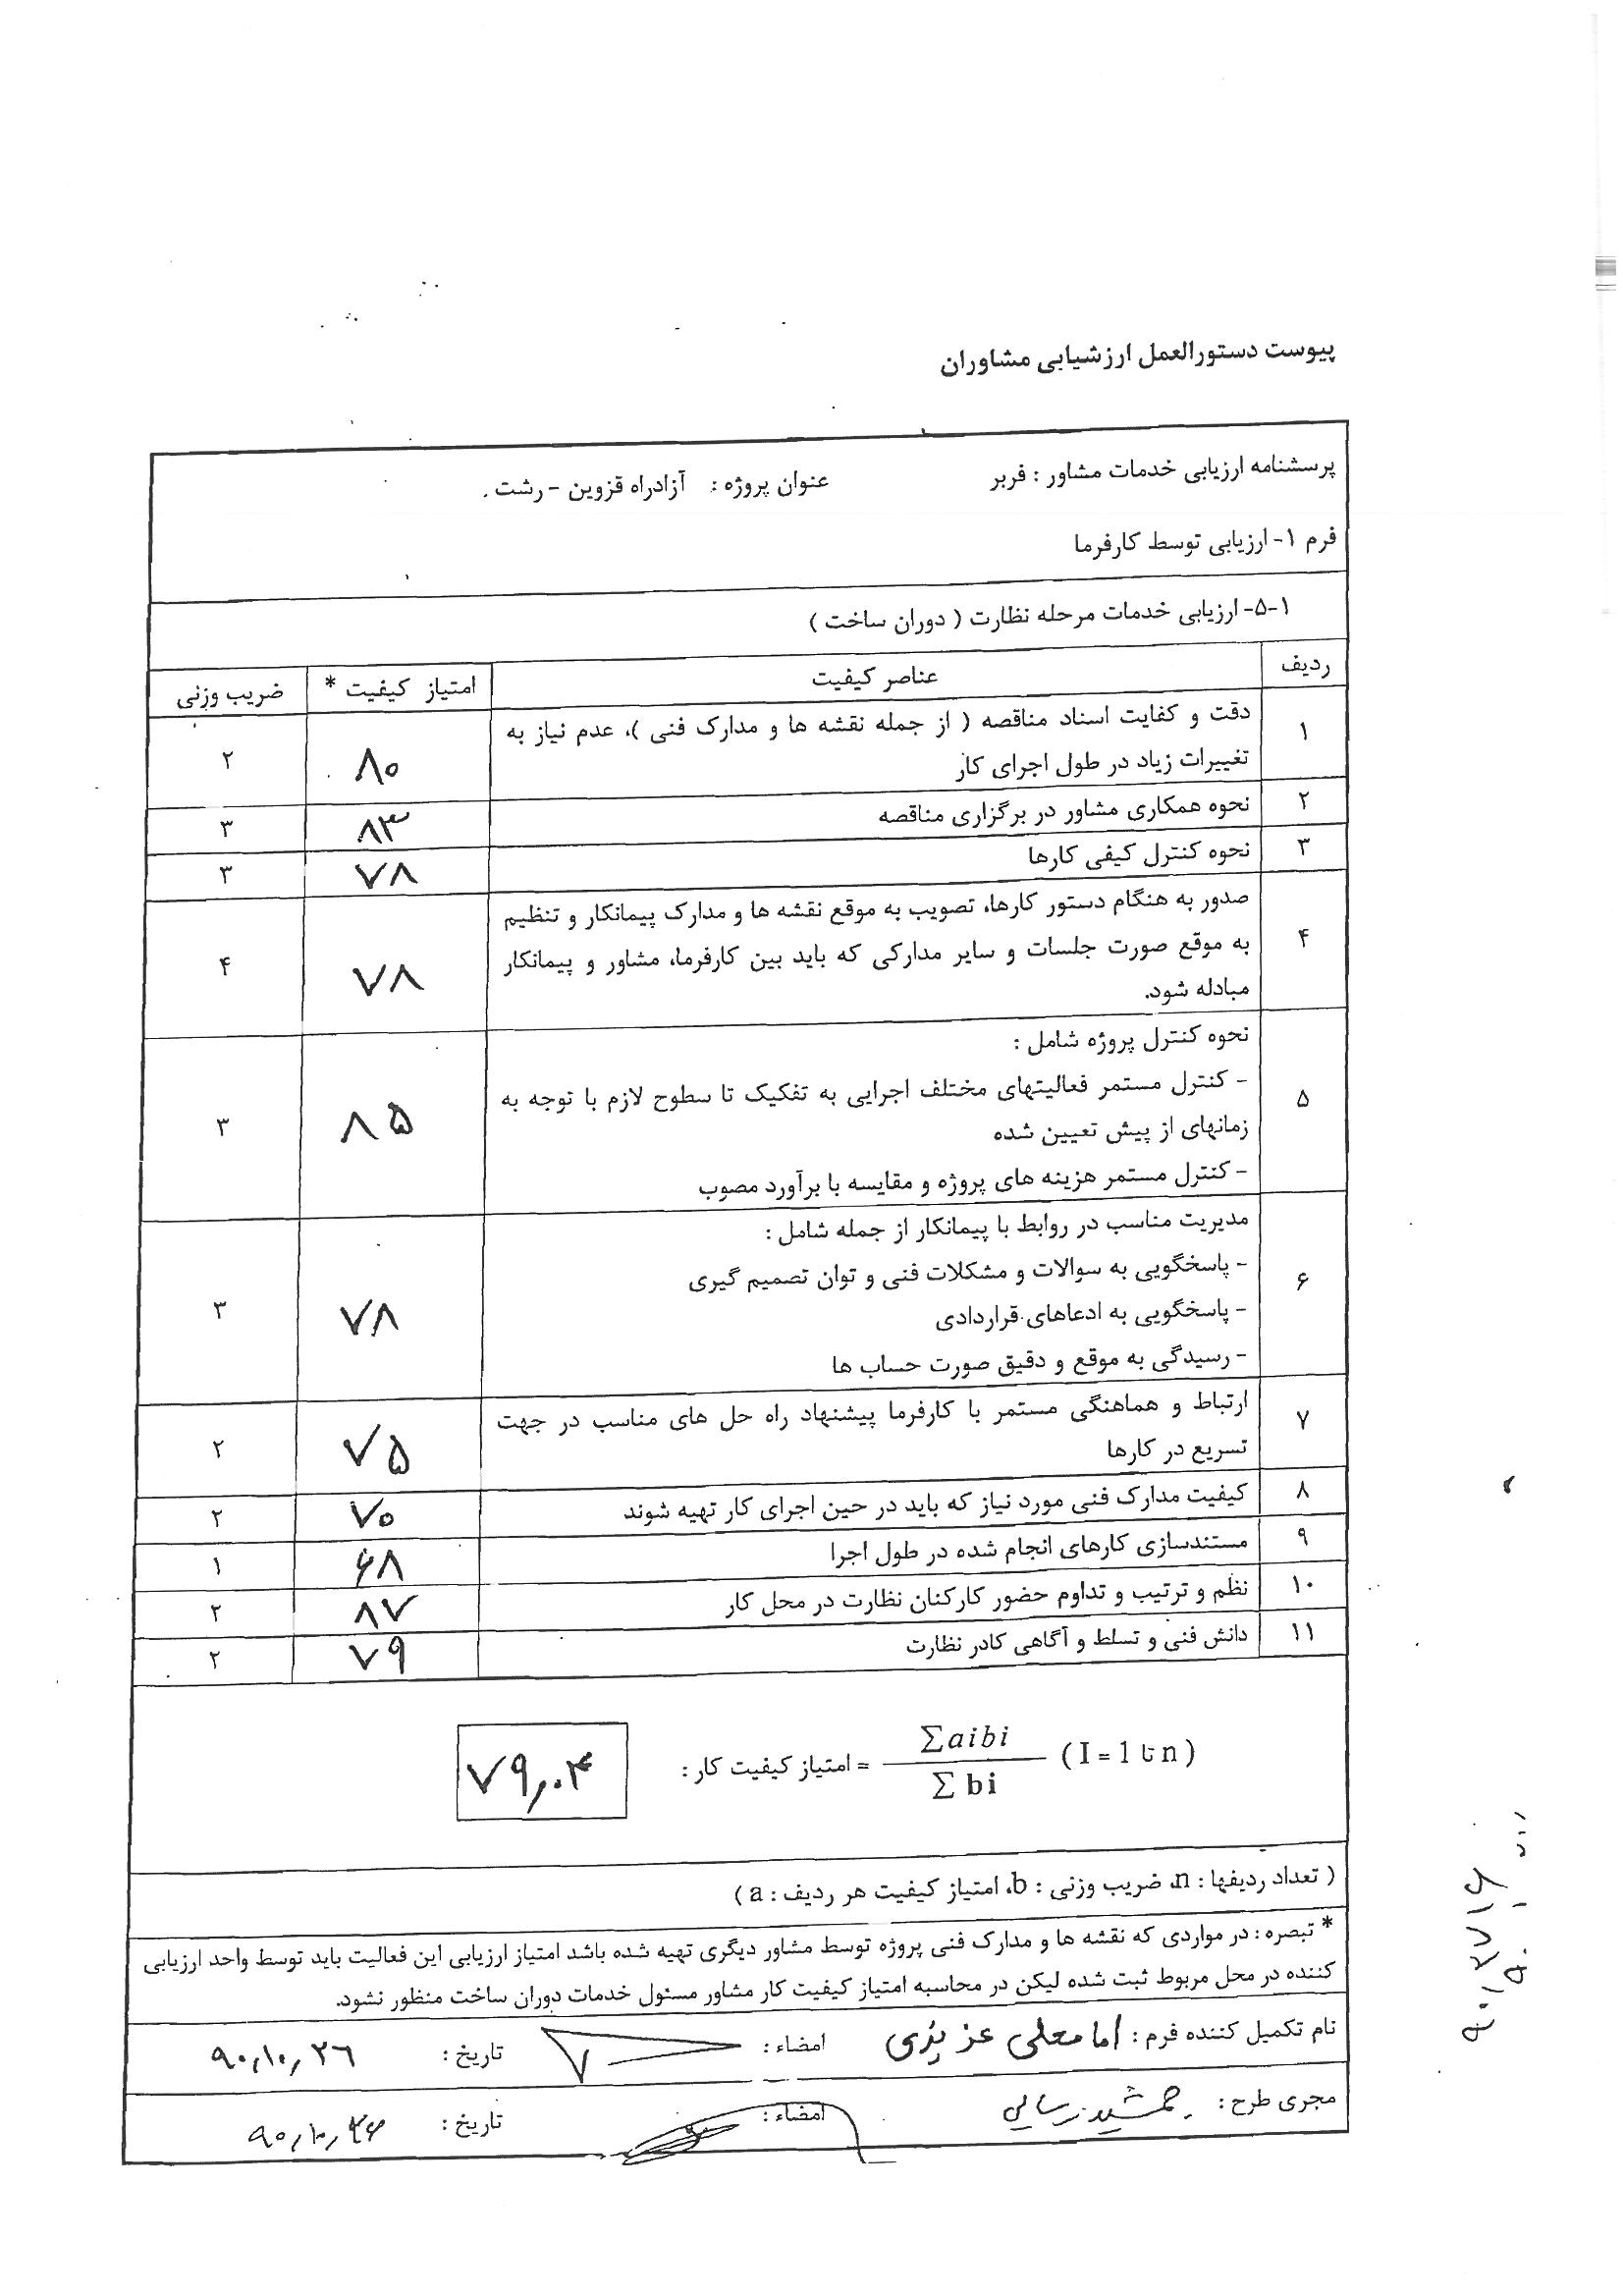 پیوست دستورالعمل ارزشیابی مشاوران
پرسشنامه ارزیابی خدمات مشاور : فربر عنوان پروژه : آزادراه قزوین - رشت .
فرم ۱- ارزیابی توسط کارفرما
۱-۵- ارزیابی خدمات مرحله نظارت ( دوران ساخت )
ردیف عناصر کیفیت امتیاز کیفیت * ضریب وزنی
۱ دقت و کفایت اسناد مناقصه ( از جمله نقشه ها و مدارک فنی )، عدم نیاز به
تغییرات زیاد در طول اجرای کار ۸۰ ۲
۲ نحوه همکاری مشاور در برگزاری مناقصه ۸۳ ۳
۳ نحوه کنترل کیفی کارها ۷۸ ۳
۴ صدور به هنگام دستور کارها، تصویب به موقع نقشه ها و مدارک پیمانکار و تنظیم
به موقع صورت جلسات و سایر مدارکی که باید بین کارفرما، مشاور و پیمانکار ۷۸ ۴
مبادله شود.
نحوه کنترل پروژه شامل :
۵ - کنترل مستمر فعالیتهای مختلف اجرایی به تفکیک تا سطوح لازم با توجه به ۸۵ ۳
زمانهای از پیش تعیین شده
- کنترل مستمر هزینه های پروژه و مقایسه با برآورد مصوب
مدیریت مناسب در روابط با پیمانکار از جمله شامل :
۶ - پاسخگویی به سوالات و مشکلات فنی و توان تصمیم گیری ۷۸ ۳
- پاسخگویی به ادعاهای قراردادی
- رسیدگی به موقع و دقیق صورت حساب ها
۷ ارتباط و هماهنگی مستمر با کارفرما پیشنهاد راه حل های مناسب در جهت
تسریع در کارها ۷۵ ۲
۸ کیفیت مدارک فنی مورد نیاز که باید در حین اجرای کار تهیه شوند ۷۰ ۲
۹ مستندسازی کارهای انجام شده در طول اجرا ۶۸ ۱
۱۰ نظم و ترتیب و تداوم حضور کارکنان نظارت در محل کار ۸۷ ۲
۱۱ دانش فنی و تسلط و آگاهی کادر نظارت ۷۹ ۲
(I = 1 تا n) Σaibi / Σ bi = امتیاز کیفیت کار : ۷۹٫۰۴
( تعداد ردیفها : n، ضریب وزنی : b، امتیاز کیفیت هر ردیف : a )
* تبصره : در مواردی که نقشه ها و مدارک فنی پروژه توسط مشاور دیگری تهیه شده باشد امتیاز ارزیابی این فعالیت باید توسط واحد ارزیابی
کننده در محل مربوط ثبت شده لیکن در محاسبه امتیاز کیفیت کار مشاور مسئول خدمات دوران ساخت منظور نشود.
نام تکمیل کننده فرم : امامعلی عزیزی امضاء : تاریخ : ۹۰,۱۰,۲۶
مجری طرح : جمشید رسایی امضاء : تاریخ : ۹۰,۱۰,۲۶